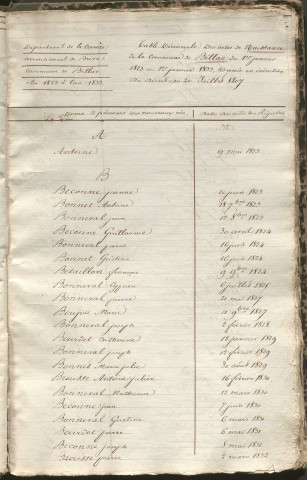 Département de la Corrèze
arrondissement de Brive
Commune de Billac
An 1823 à l'an 1833
Table Décennale Des actes de Naissance
de la Commune de Billac, du 1er janvier
1823 au 1er janvier 1833, Dressée en exécution
du décret du 20 Juillet 1807
Noms et prénoms des nouveaux nés
Dates des actes des Registres
A
Antoine 19 mai 1823
B
Beconne jeanne
Bonnet Antoine 18 7bre 1823
Bonneval jean 12 8bre 1823
Beconne Guillaume 30 avril 1824
Bonneval 16 juin 1824
Bonnet 16 juin 1824
Betaillon françois 9 9bre 1824
Bonneval 6 juillet 1825
Bonneval pierre 20 mai 1827
Marie 11 9bre 1827
Bonneval joseph 2 février 1828
Bourdet Catherine 18 janvier 1829
Bonneval joseph 12 février 1829
Bonnet Marie julie 30 août 1829
Antoine julien 16 février 1830
Bonneval 12 mars 1830
Beconne jean 7 juin 1830
Bonneval 6 mars 1831
Bourdet pierre 6 mai 1831
Beconne joseph 8 mai 1831
pierre 2 mars 1832